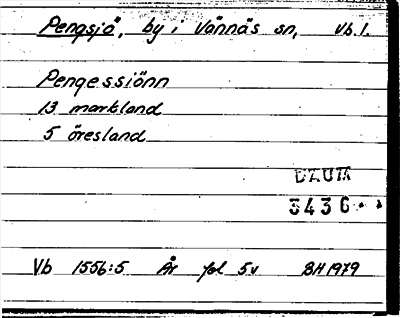 Pengsjö, by i Vännäs sn, Vb.l.
Pengessiönn
13 markland
5 öresland
DAUM
3436
Vb 1556:5 År fol 5v BH 1979